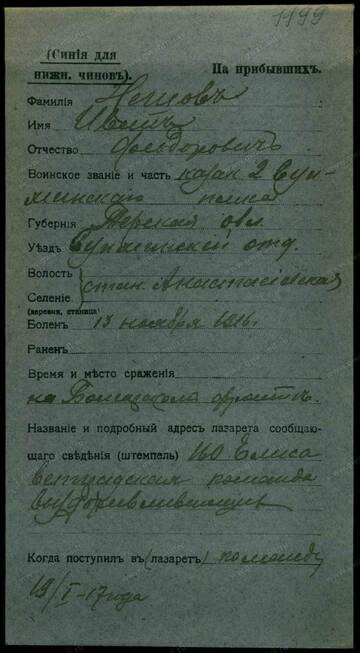 1199
(Синія для
нижн. чиновъ).
На прибывшихъ.
Фамилія
Имя
Отчество Фельдоровичъ
Воинское званіе и часть казак 2 Сун-
женскаго полка
Губернія Терская обл
Уѣздъ Сунженскій отд.
Волость
Селеніе
стан.
(деревня, станица)
Боленъ 13 ноября 1916г.
Раненъ
Время и мѣсто сраженія
на фронтѣ.
Названіе и подробный адресъ лазарета сообщаю-
щаго свѣдѣнія (штемпель) 160 Елиса
ветградская команда
выздоравливающих
Когда поступилъ въ (лазаретъ) команду
19/I-17 года